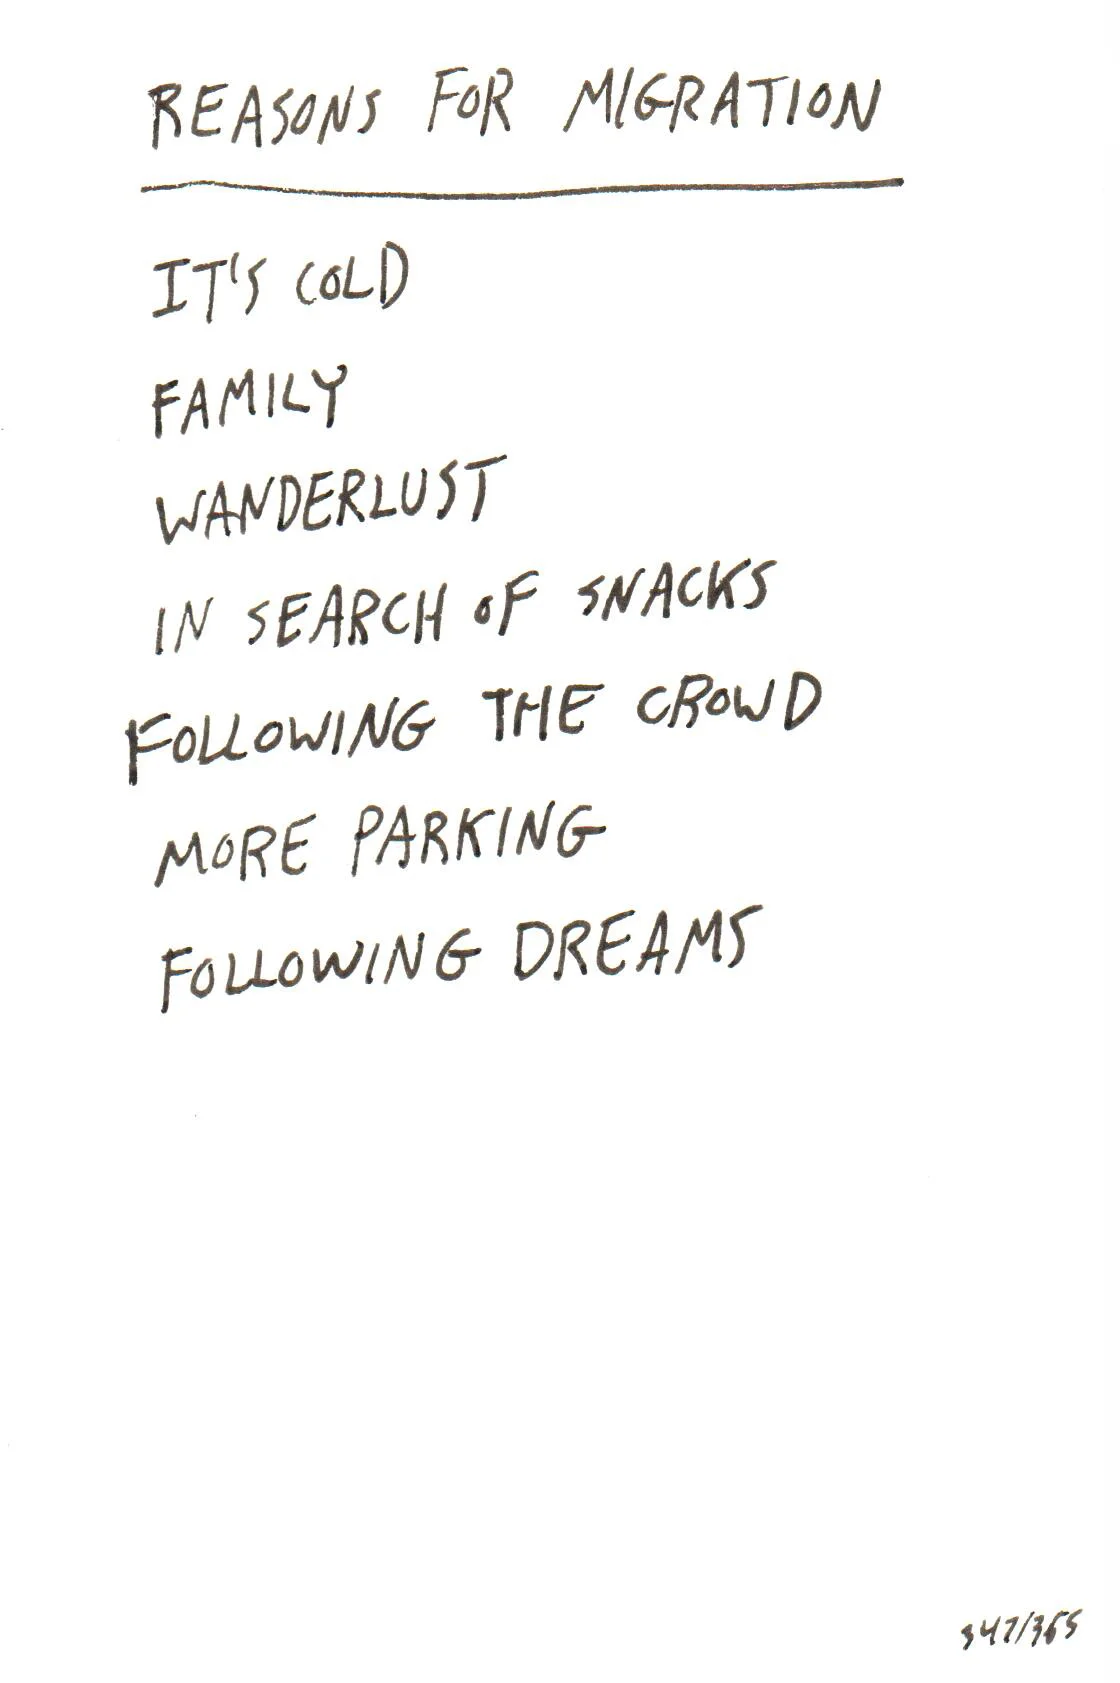 REASONS FOR MIGRATION
IT'S COLD
FAMILY
WANDERLUST
IN SEARCH OF SNACKS
FOLLOWING THE CROWD
MORE PARKING
FOLLOWING DREAMS
347/365